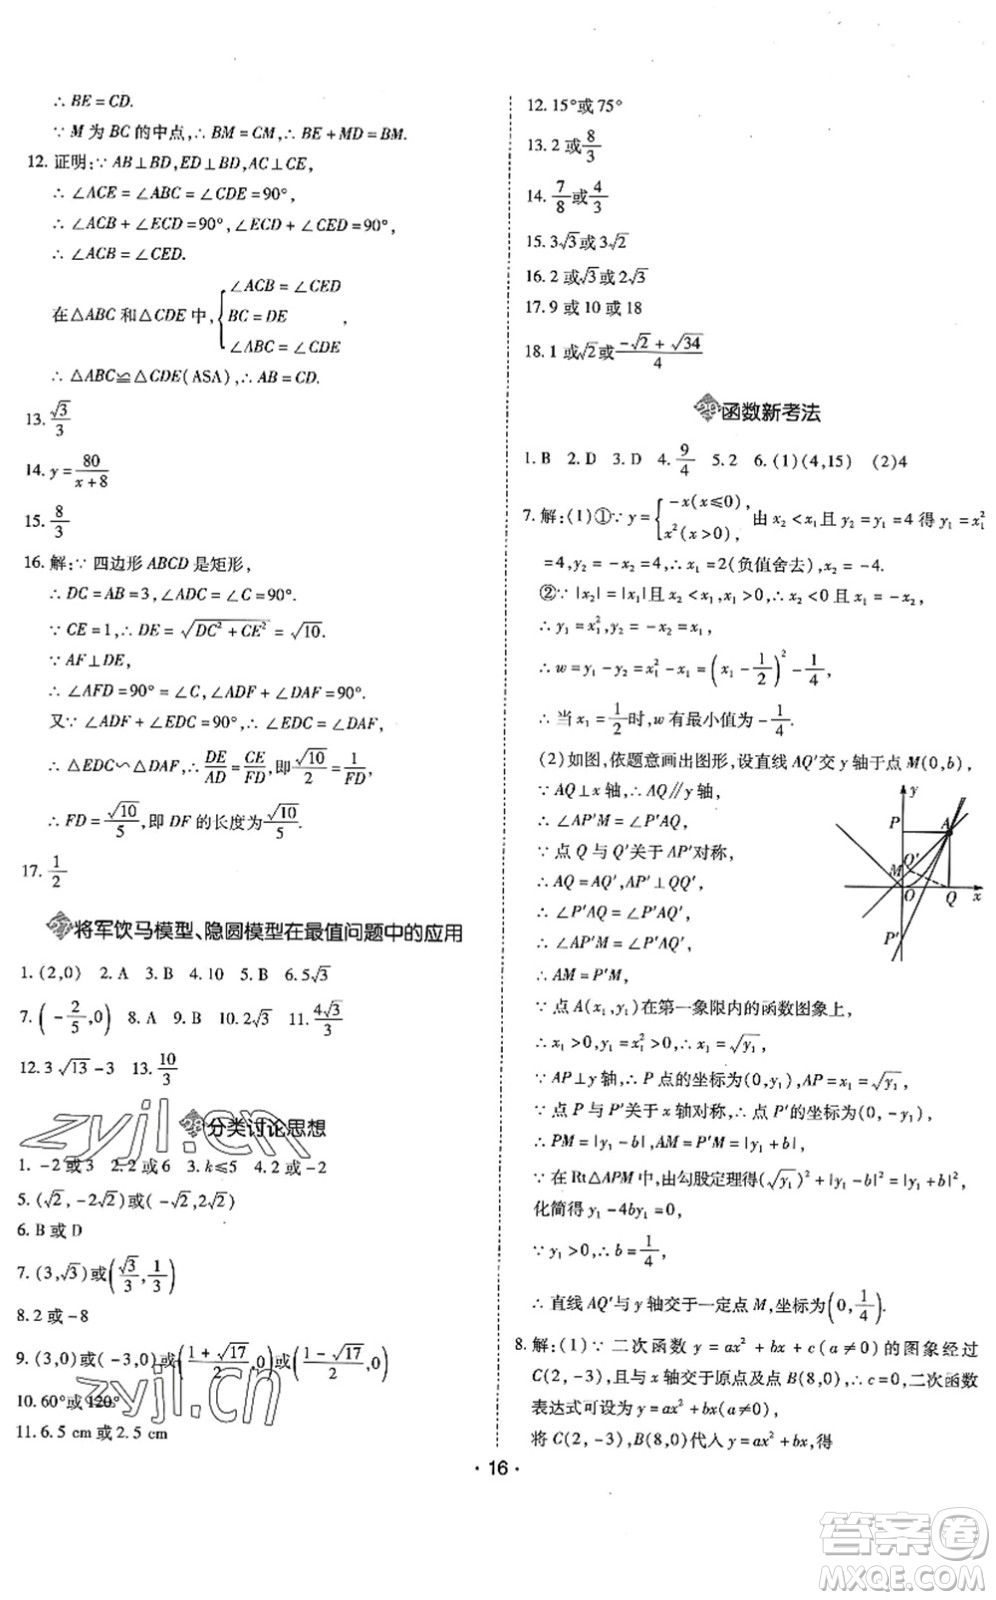 ∴ BE = CD.
∵ M 为 BC 的中点,∴ BM = CM,∴ BE + MD = BM.
12. 证明:∵ AB⊥BD,ED⊥BD,AC⊥CE,
∴ ∠ACE = ∠ABC = ∠CDE = 90°,
∴ ∠ACB + ∠ECD = 90°,∠ECD + ∠CED = 90°,
∴ ∠ACB = ∠CED.
在△ABC 和△CDE 中,{∠ACB = ∠CED
BC = DE
∠ABC = ∠CDE,
∴ △ABC≌△CDE(ASA),∴ AB = CD.
13. √3/3
14. y = 80/(x+8)
15. 8/3
16. 解:∵ 四边形 ABCD 是矩形,
∴ DC = AB = 3,∠ADC = ∠C = 90°.
∵ CE = 1,∴ DE = √(DC² + CE²) = √10.
∵ AF⊥DE,
∴ ∠AFD = 90° = ∠C,∠ADF + ∠DAF = 90°.
又∵ ∠ADF + ∠EDC = 90°,∴ ∠EDC = ∠DAF,
∴ △EDC∽△DAF,∴ DE/AD = CE/FD,即 √10/2 = 1/FD,
∴ FD = √10/5,即 DF 的长度为 √10/5.
17. 1/2
27 将军饮马模型、隐圆模型在最值问题中的应用
1. (2,0) 2. A 3. B 4. 10 5. B 6. 5√3
7. (-2/5,0) 8. A 9. B 10. 2√3 11. 4√3/3
12. 3√13 - 3 13. 10/3
28 分类讨论思想
1. -2 或 3 2. 2 或 6 3. k≤5 4. 2 或 -2
5. (√2, -2√2)或(-√2,2√2)
6. B 或 D
7. (3,√3)或(√3/3,1/3)
8. 2 或 -8
9. (3,0)或(-3,0)或((1+√17)/2,0)或((1-√17)/2,0)
10. 60°或 120°
11. 6.5 cm 或 2.5 cm
12. 15°或 75°
13. 2 或 8/3
14. 7/8 或 4/3
15. 3√3 或 3√2
16. 2 或√3 或 2√3
17. 9 或 10 或 18
18. 1 或√2 或 (-√2+√34)/4
29 函数新考法
1. B 2. D 3. D 4. 9/4 5. 2 6. (1)(4,15) (2)4
7. 解:(1)①∵ y = {-x(x≤0),
x²(x>0), 由 x₂ < x₁ 且 y₂ = y₁ = 4 得 y₁ = x₁²
= 4,y₂ = -x₂ = 4,∴ x₁ = 2(负值舍去),x₂ = -4.
②∵ |x₂| = |x₁| 且 x₂ < x₁,x₁ > 0,∴ x₂ < 0 且 x₁ = -x₂,
∴ y₁ = x₁²,y₂ = -x₂ = x₁,
∴ w = y₁ - y₂ = x₁² - x₁ = (x₁ - 1/2)² - 1/4,
∴ 当 x₁ = 1/2 时,w 有最小值为 -1/4.
(2)如图,依题意画出图形,设直线 AQ′交 y 轴于点 M(0,b),
∵ AQ⊥x 轴,∴ AQ∥y 轴,
∴ ∠AP′M = ∠P′AQ,
∵ 点 Q 与 Q′关于 AP′对称,
∴ AQ = AQ′,AP′⊥QQ′,
∴ ∠P′AQ = ∠P′AQ′,
∴ ∠AP′M = ∠P′AQ′,
∴ AM = P′M,
y
P
A
Q′
M
O
Q
x
P′
∵ 点 A(x₁,y₁)在第一象限内的函数图象上,
∴ x₁ > 0,y₁ = x₁² > 0,∴ x₁ = √y₁,
∵ AP⊥y 轴,∴ P 点的坐标为(0,y₁),AP = x₁ = √y₁,
∵ 点 P 与 P′关于 x 轴对称,∴ P′(0,-y₁),
∴ PM = |y₁ - b|,AM = P′M = |y₁ + b|,
∵ 在 Rt△APM 中,由勾股定理得(√y₁)² + |y₁ - b|² = |y₁ + b|²,
化简得 y₁ - 4by₁ = 0,
∵ y₁ > 0,∴ b = 1/4,
∴ 直线 AQ′与 y 轴交于一定点 M,坐标为(0,1/4).
8. 解:(1)∵ 二次函数 y = ax² + bx + c(a≠0)的图象经过
C(2,-3),且与 x 轴交于原点及点 B(8,0),∴ c = 0,二次函数
表达式可设为 y = ax² + bx(a≠0),
将 C(2,-3),B(8,0)代入 y = ax² + bx,得
· 16 ·
zyjl.cn
zyjl.cn
答案卷
MXQE.COM